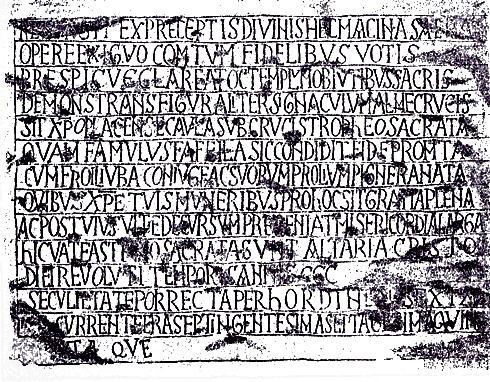 EX PRECEPTIS DIVINIS HEC MACINA SA
OPERE EXIGVO COMTVM FIDELIBVS VOTIS
PRESPICVE CLAREAT OC TEMPLVM OBTVTIBVS SACRIS
DEMONSTRANS FIGVRALTER SIGNACVLVM ALME CRVCIS
SIT XPO PLACENS EC AVLA SVB CRVCIS TROPHEO SACRATA
QVAM FAMVLVS FAFFILA SIC CONDIDIT FIDE PROMTA
CVM FROILIVBA CONIVGE AC SVORVM PROLIVM PIGNERA NATA
QVIBVS XPE TVIS MVNERIBVS PRO hOC SIT GRATIA PLENA
AC POST VIVS VITE DECVRSVM PREVENIAT MISERICORDIA LARGA
hIC VATE ASTERIO SACRATA SVNT ALTARIA CRISTO
DIEI REVOLVTI TEMPORIS ANNIS CCC
SECVLI ETATE PORRECTA PER hORDINEM
CVRRENTE ERA SEPTINGENTESIMA SEPTAGESIMA QVIN
TA QVE